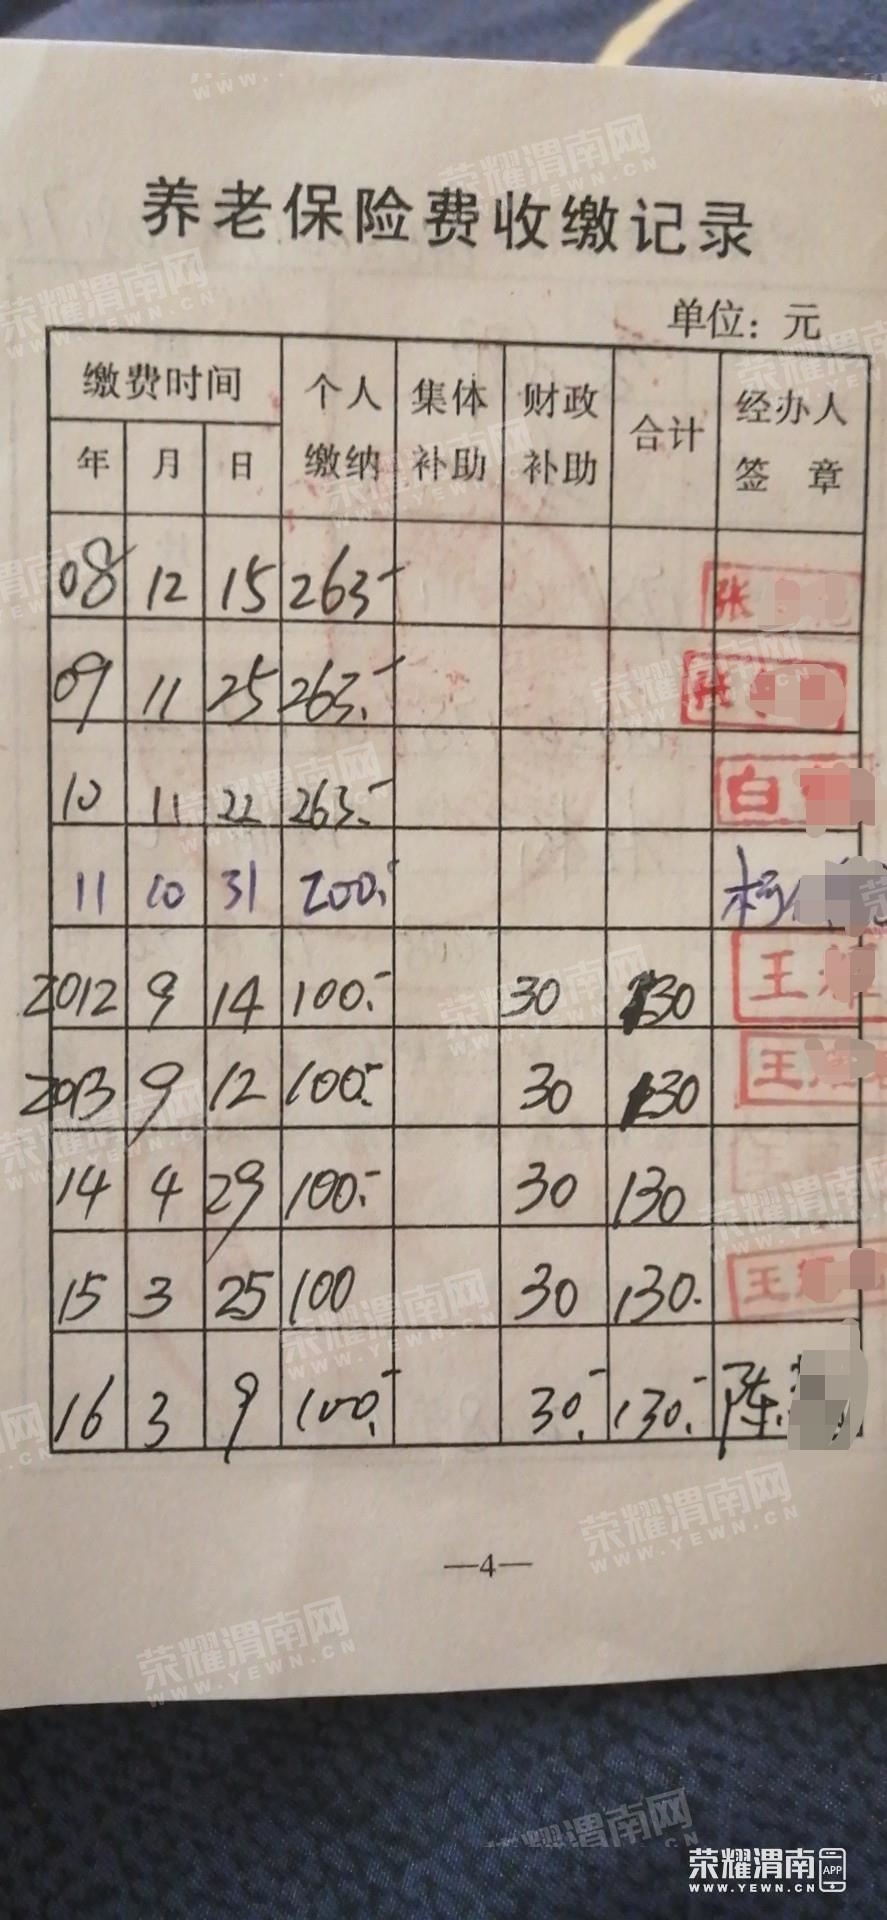 养老保险费收缴记录
单位：元
缴费时间 个人缴纳 集体补助 财政补助 合计 经办人签章
年 月 日
08 12 15 263- 张
09 11 25 263.- 张
10 11 22 263.- 白
11 10 31 200.-
2012 9 14 100.- 30 130 王
2013 9 12 100.- 30 130 王
14 4 29 100.- 30 130 王
15 3 25 100 30 130. 王
16 3 9 100.- 30.- 130.- 陈
—4—
荣耀渭南网
WWW.YEWN.CN
荣耀渭南 APP
WWW.YEWN.CN